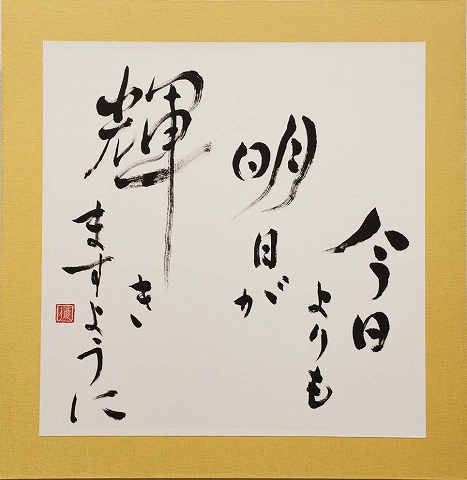 今日よりも
明日が
輝き
ますように